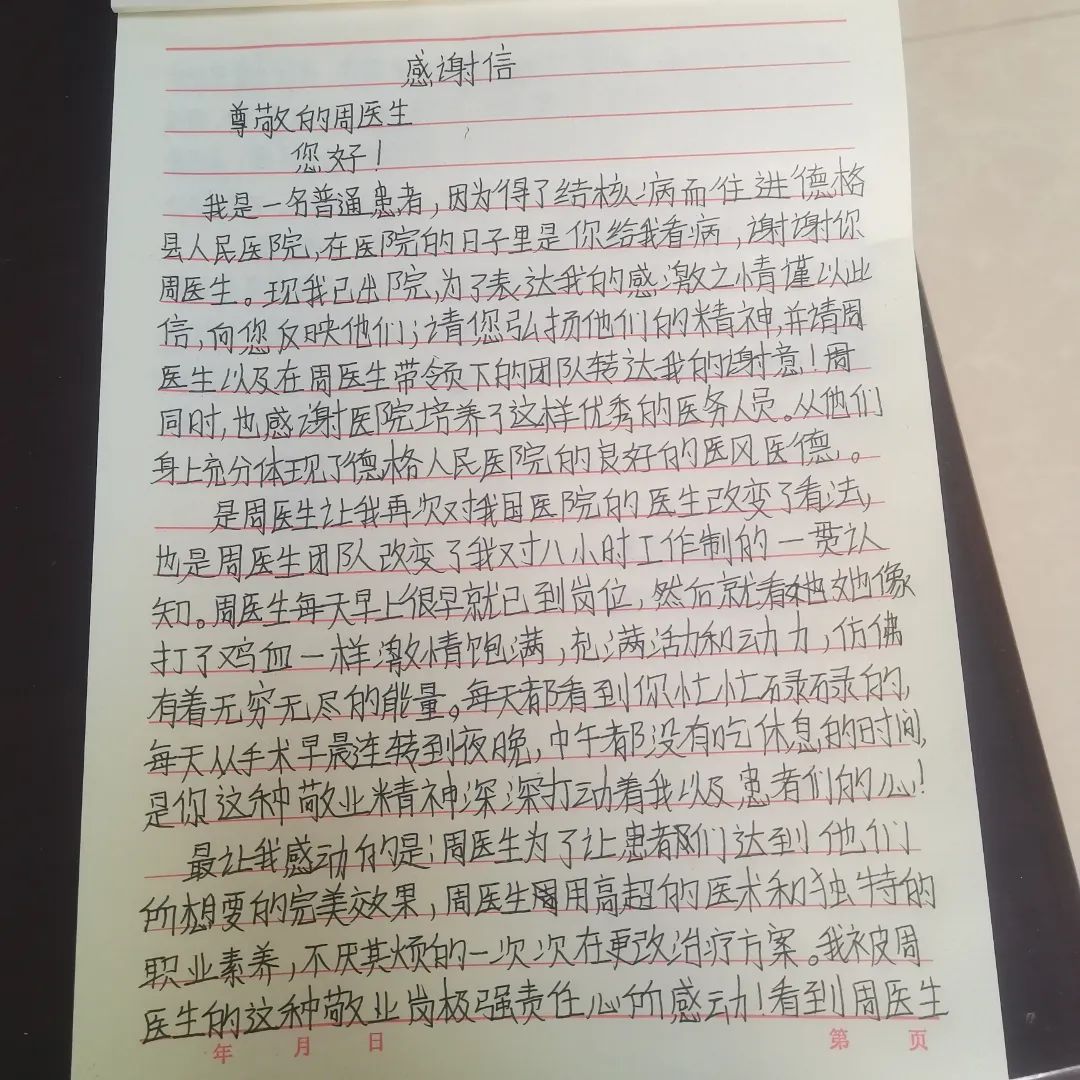 感谢信
尊敬的周医生
您好！
我是一名普通患者，因为得了结核病而住进德格
县人民医院，在医院的日子里是你给我看病，谢谢你
周医生。现我已出院，为了表达我的感激之情谨以此
信，向您反映他们；请您弘扬他们的精神，并请周
医生以及在周医生带领下的团队转达我的谢意！周
同时，也感谢医院培养了这样优秀的医务人员。从他们
身上充分体现了德格人民医院的良好的医风医德。
是周医生让我再次对我国医院的医生改变了看法，
也是周医生团队改变了我对八小时工作制的一贯认
知。周医生每天早上很早就已到岗位，然后就看她她像
打了鸡血一样激情饱满，充满活力和动力，仿佛
有着无穷无尽的能量。每天都看到你忙忙碌碌的，
每天从手术早晨连转到夜晚，中午都没有吃休息的时间，
是你这种敬业精神深深打动着我以及患者们的心！
最让我感动的是；周医生为了让患者们达到他们
所想要的完美效果，周医生用高超的医术和独特的
职业素养，不厌其烦的一次次在更改治疗方案。我被周
医生的这种敬业岗极强责任心所感动！看到周医生
年 月 日 第 页